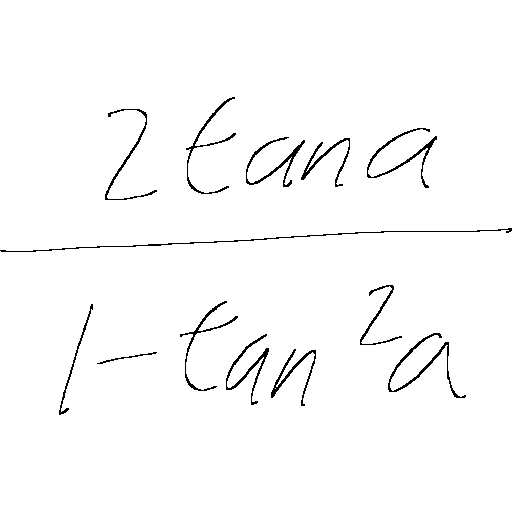 2 tan a
1 - tan²a